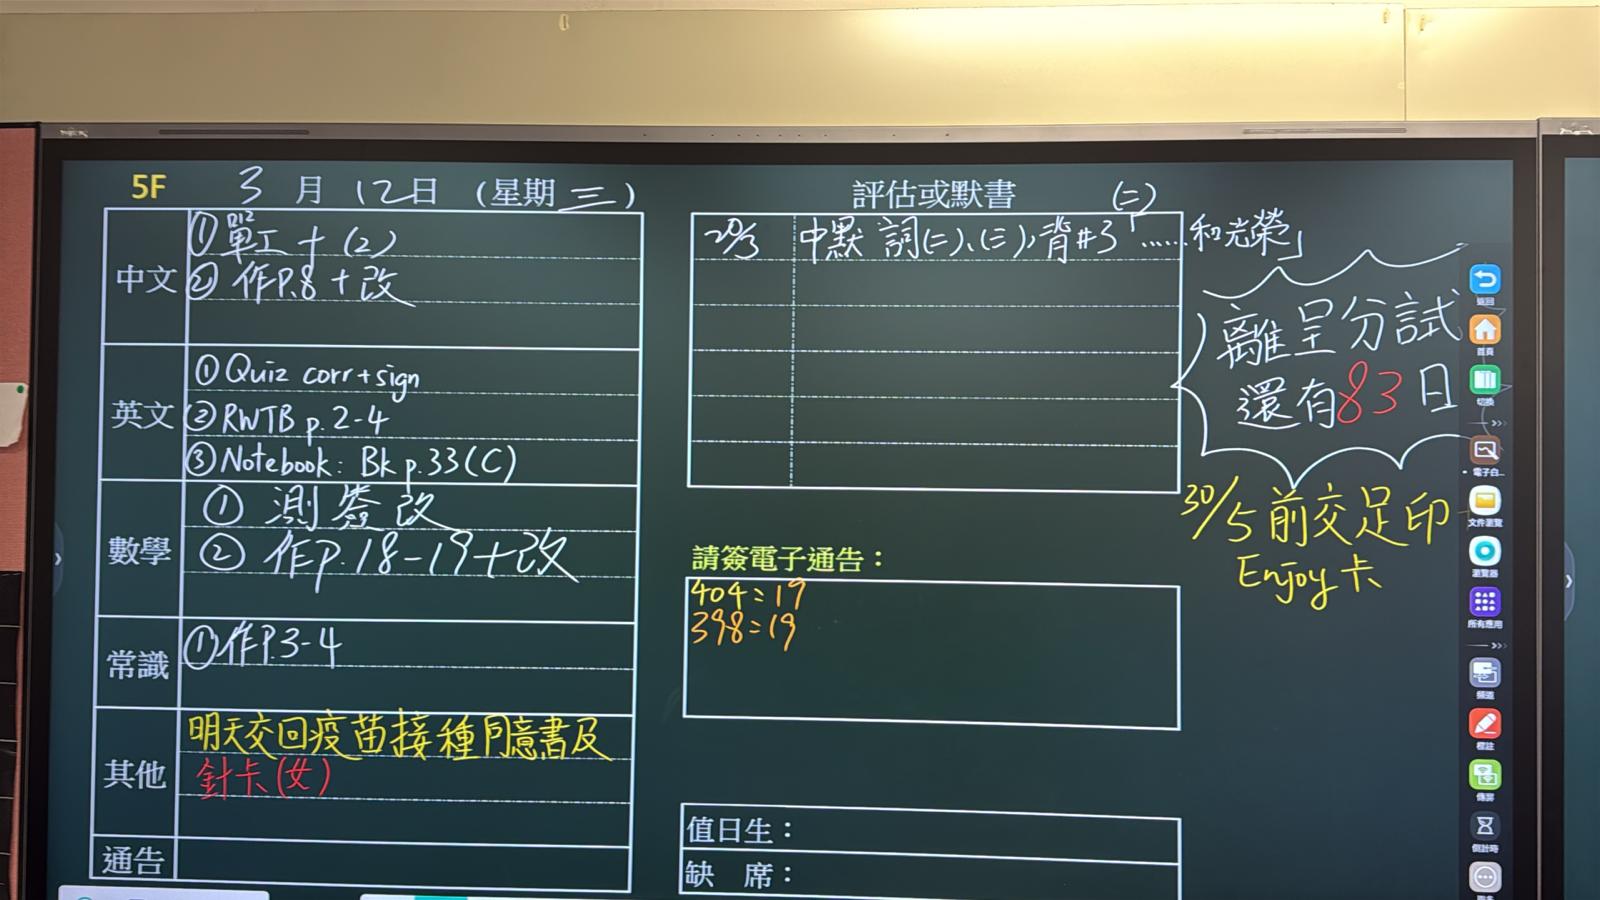 5F 3月12日 (星期三)
中文
①單工十(2)
P12
②作P.8+改
英文
①Quiz corr+sign
②RWTB p.2-4
③Notebook: Bk p.33(C)
數學
①測簽改
②作P.18-19+改
常識
①作P.3-4
其他
明天交回疫苗接種同意書及
針卡(女)
通告
評估或默書 (二)
20/3 中默 詞(二)、(三),背#3「……和光榮」
離呈分試
還有83日
30/5前交足印
Enjoy卡
請簽電子通告：
404=19
398=19
值日生：
缺 席：
返回
首頁
切換
電子白...
文件瀏覽
瀏覽器
所有應用
頻道
標註
傳屏
倒計時